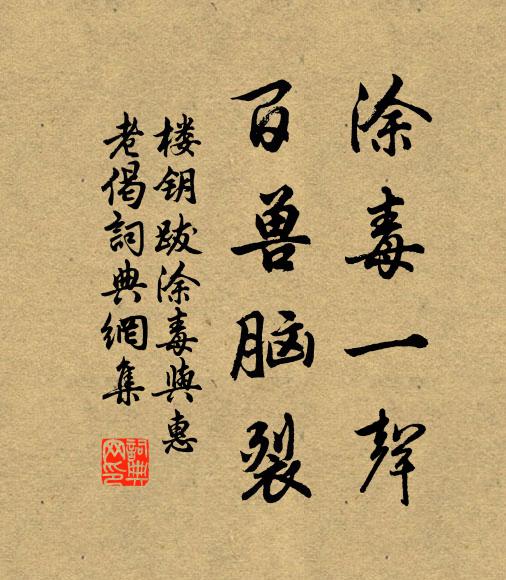 涂毒一聲
百兽脑裂
楼钥跋涂毒與惠
老偈詞典網集
詞典
网印